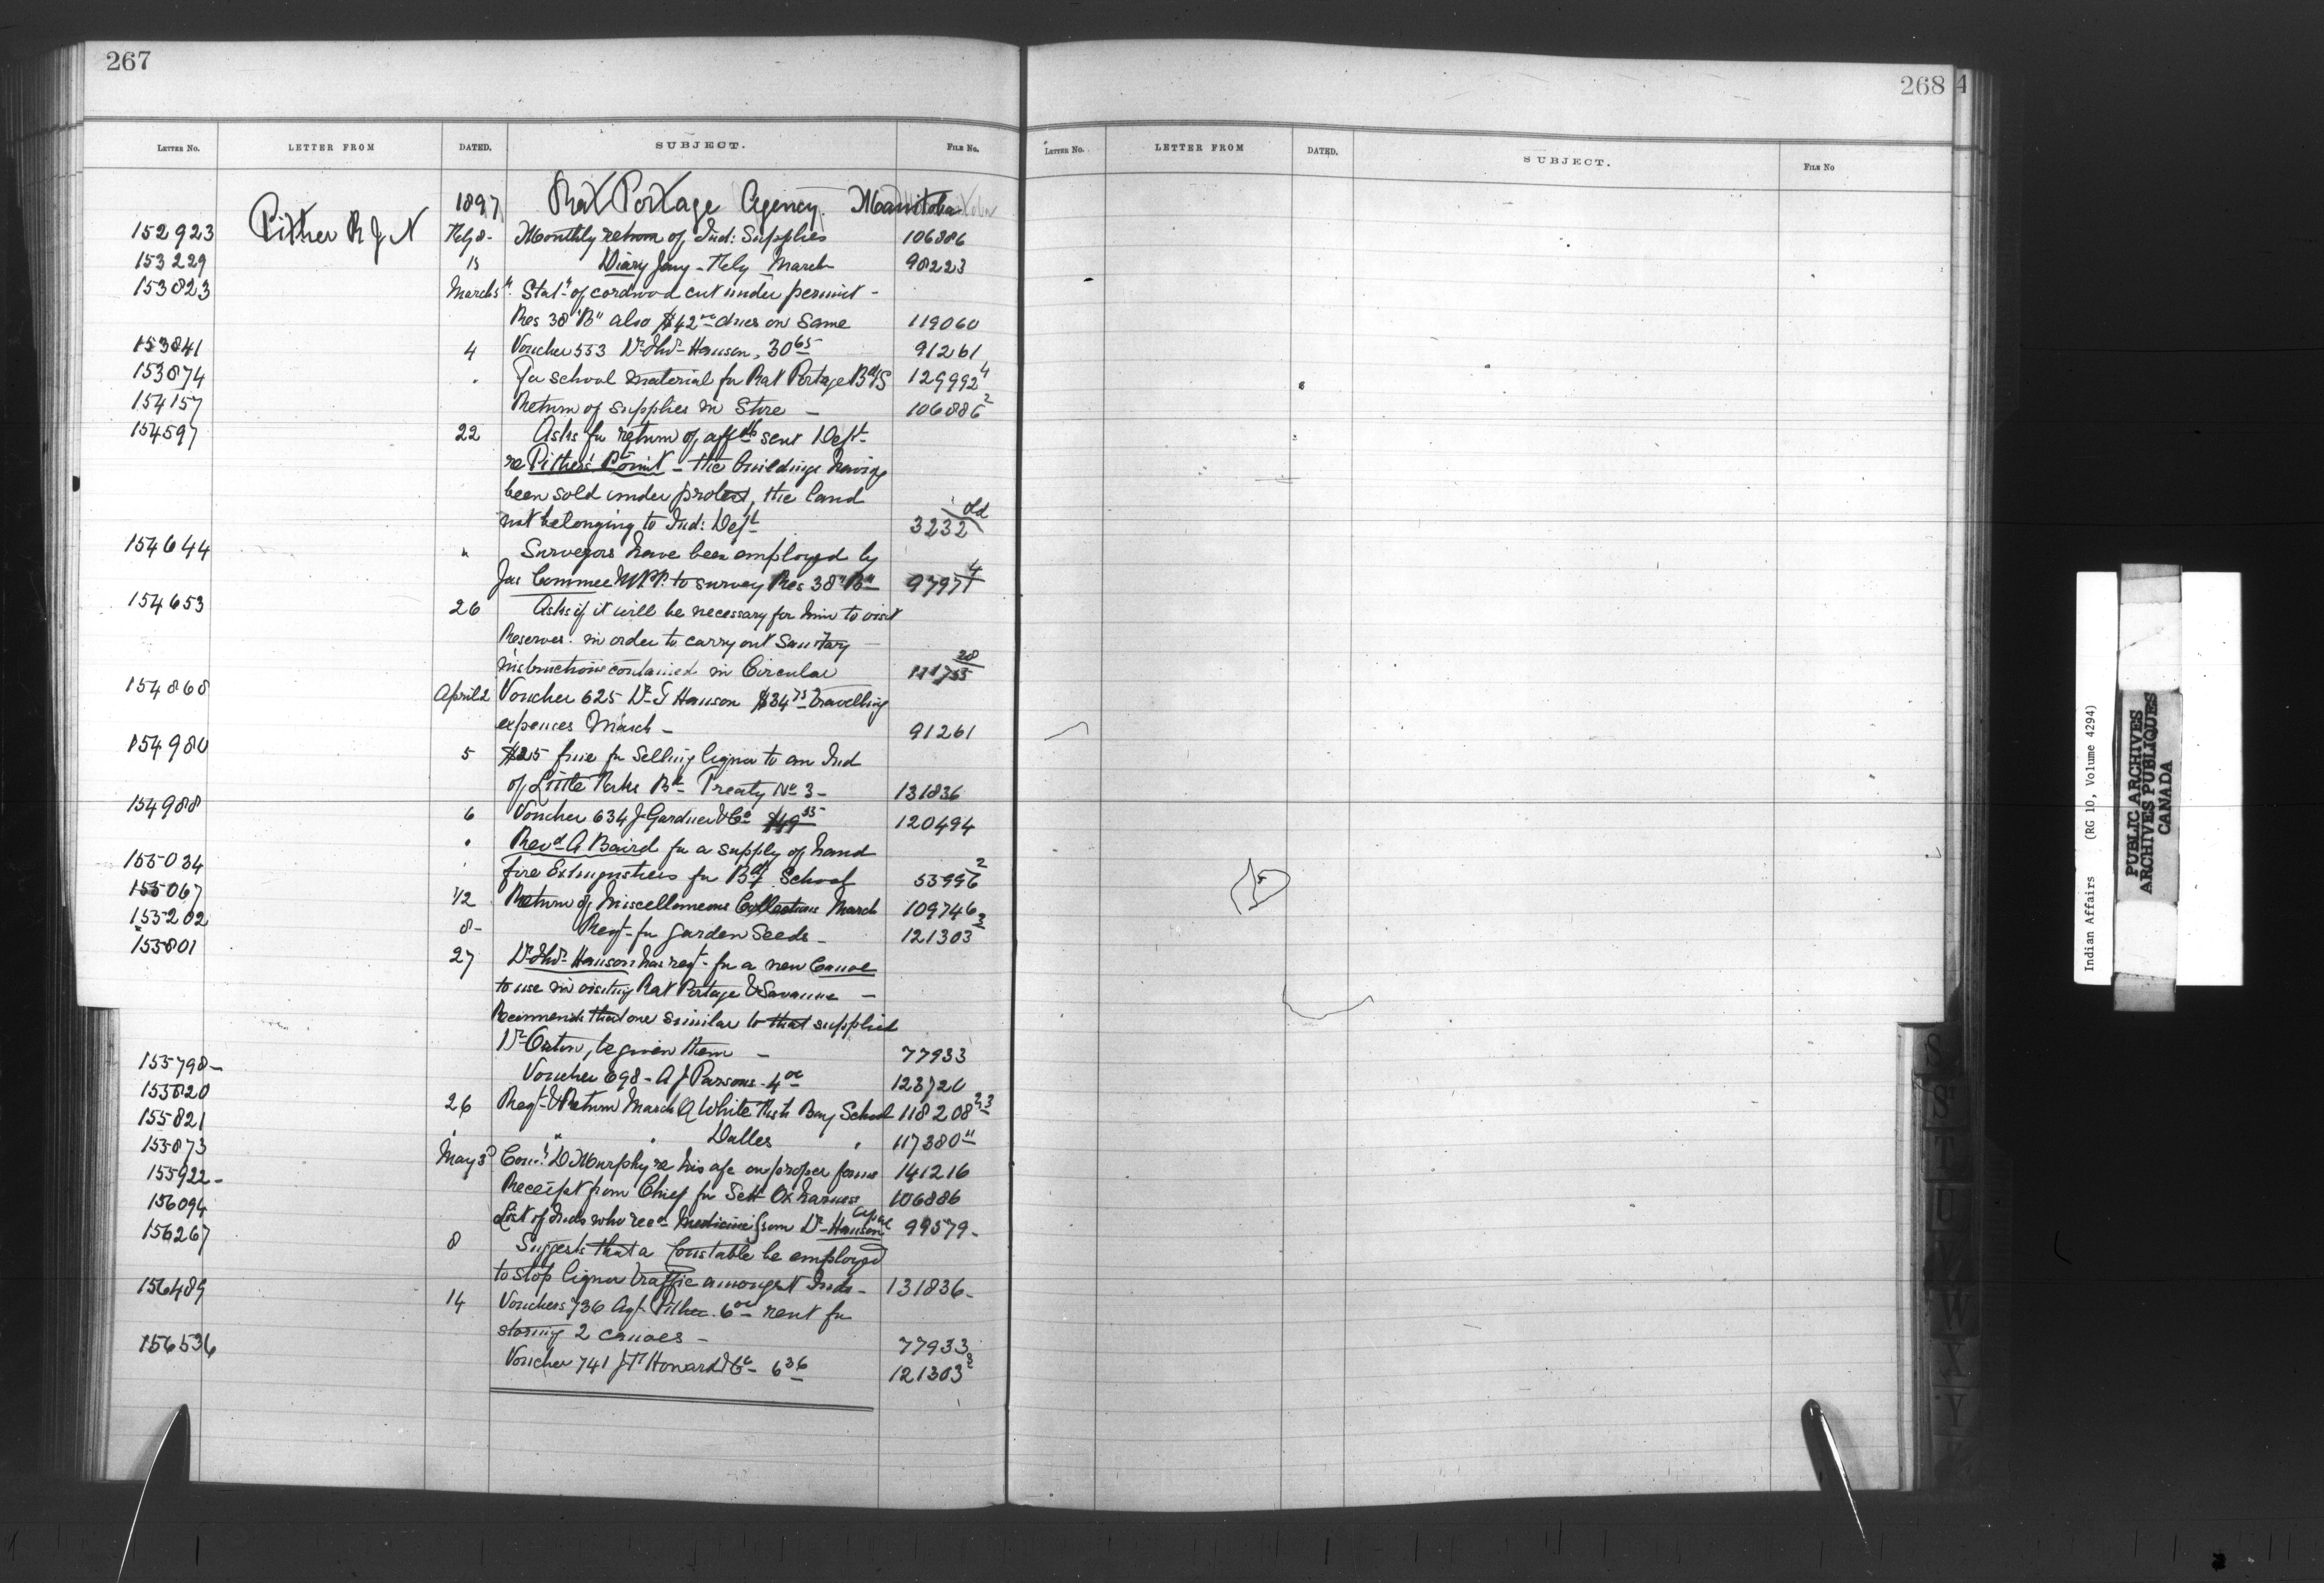 267
LETTER NO. LETTER FROM DATED. SUBJECT. FILE NO.
1897 Rat Portage Agency. Manitoba
152923 Pither R J N Feby 8 - Monthly return of Ind: Supplies 106886
153229 15 Diary Jany - Feby March 90223
153823 March 5th Stat't of cordwood cut under permit -
Res 38 "B" also $42 00 dues on same 119060
153841 4 Voucher 553 Dr Thos Hanson, 30 65 91261
153874 " For school material for Rat Portage Bdg S 129992 4
154157 Return of supplies in Store - 106886 2
154597 22 Asks for return of aff'ts sent Dept
re Pither's Point - the buildings having
been sold under protest, the land
not belonging to Ind: Dept 3232 old
154644 " Surveyors have been employed by
Jas Conmee M.P.P. to survey Res 38 "B" 97977 4
154653 26 Asks if it will be necessary for him to visit
Reserves in order to carry out Sanitary
instructions contained in Circular 111755 28
154868 April 2 Voucher 625 Dr T Hanson $34 75 travelling
expenses March - 91261
154980 5 $25 fine for selling liquor to an Ind
of Little Forks Bd - Treaty No 3 - 131836
154988 6 Voucher 634 J Gardner & Co $49 55 120494
" Revd A Baird for a supply of hand
155034 fire Extinguishers for Bdg School 55996 2
155067 12 Return of Miscellaneous Collections March 109746
155202 8 - Reqt for garden seeds - 121303 3/2
155801 27 Dr Thos Hanson has reqt for a new Canoe
to use in visiting Rat Portage & Savanne -
Recommends that one similar to that supplied
Dr Orton, be given them - 77933
155798 - Voucher 698 - A J Parsons - 4 00 123720
155820 26 Reqt & Return March Q White Fish Bay School 118208 2,3
155821 " " " Dalles " 117380 11
155873 May 3d D Murphy re his a/c on proper forms 141216
155922 - Receipt from Chief for Sett Ox harness 106886
156094 List of Inds who recd medicine from Dr Hanson April 99579 -
156267 8 Suggests that a Constable be employed
to stop liquor traffic amongst Inds - 131836 -
156489 14 Vouchers 736 Agt Pither 6 00 rent for
storing 2 canoes - 77933
156536 Voucher 741 J P Howard & Co - 6 36 121303 3/2
268
4
LETTER NO. LETTER FROM DATED. SUBJECT. FILE NO
S
S
T
U
V
W
X
Y
Indian Affairs (RG 10, Volume 4294)
PUBLIC ARCHIVES
ARCHIVES PUBLIQUES
CANADA